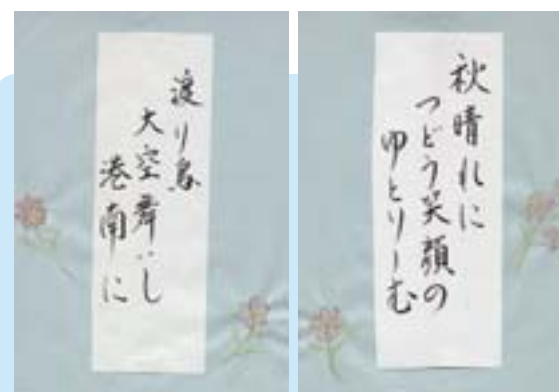 秋晴れに
つどう笑顔の
ゆとりーむ
渡り鳥
大空舞いし
港南に